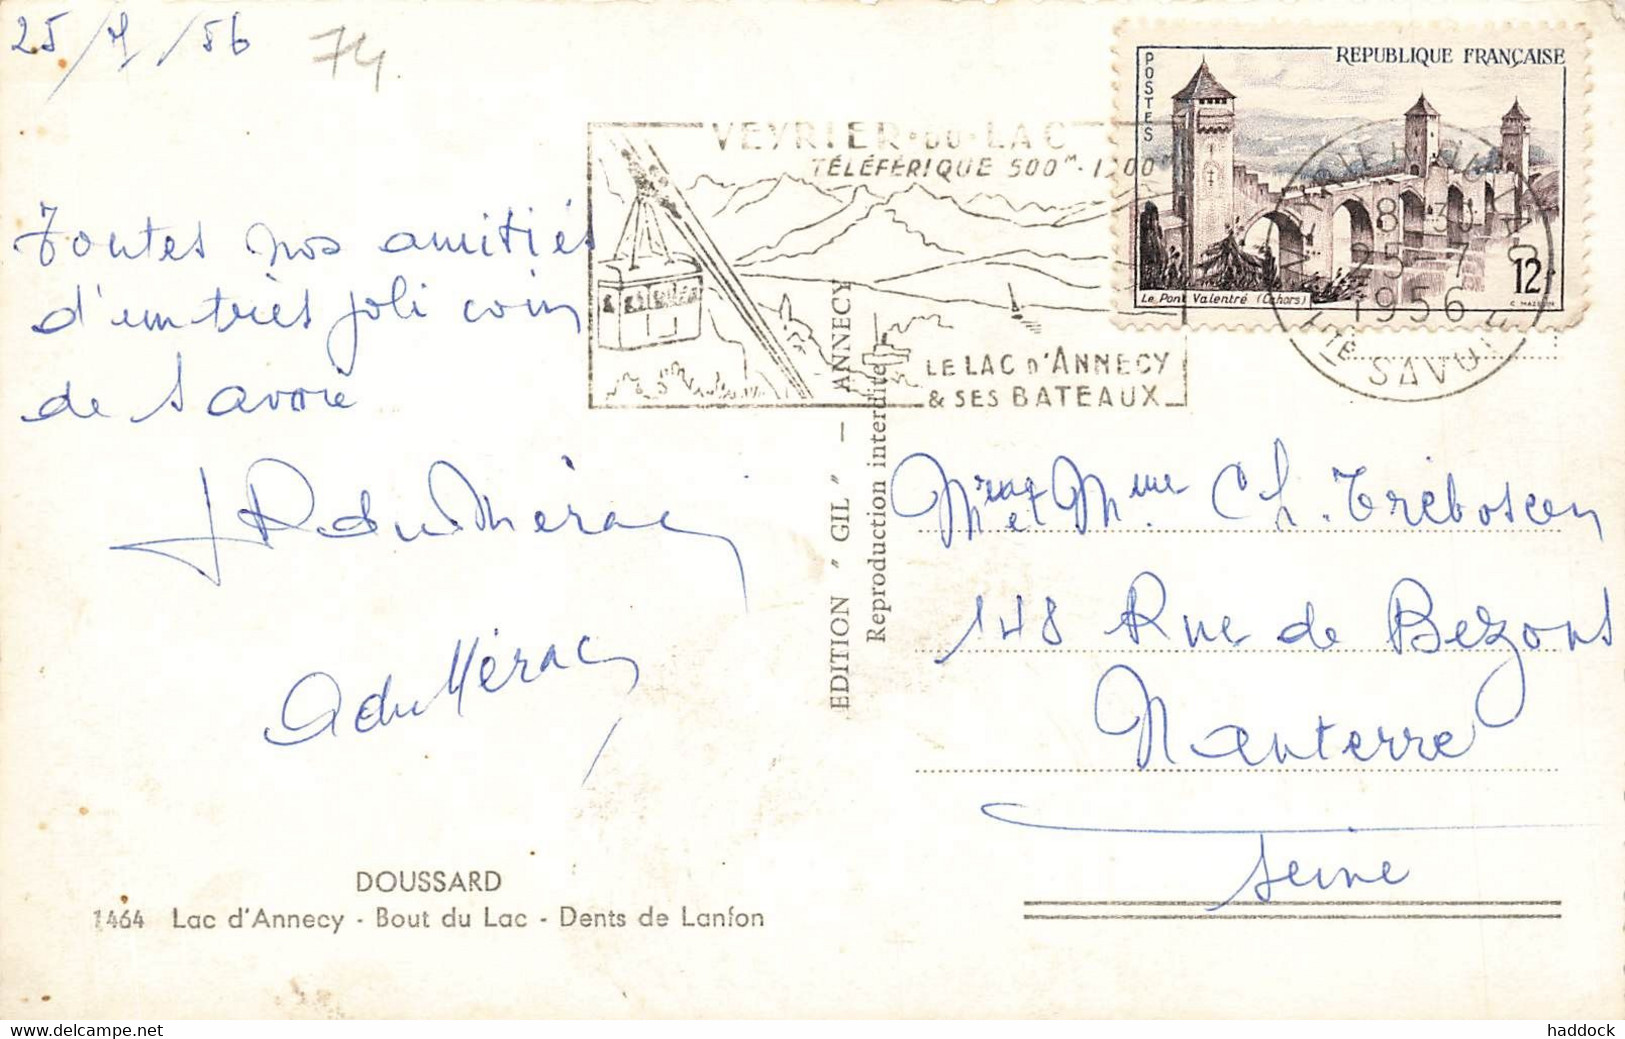 25/7/56
74
Toutes nos amitiés
d'un très joli coin
de Savoie
J R du Mérac
A du Mérac
DOUSSARD
1464 Lac d'Annecy - Bout du Lac - Dents de Lanfon
EDITION "GIL" - ANNECY
Reproduction interdite
VEYRIER-DU-LAC
TÉLÉFÉRIQUE 500m-1200m
LE LAC D'ANNECY
& SES BATEAUX
POSTES
REPUBLIQUE FRANÇAISE
Le Pont Valentré (Cahors)
12f
C. MAZELIN
VEYRIER DU LAC
18-30
25-7
1956
HTE SAVOIE
Mr et Mme Ch. Tréboscen
148 Rue de Bezons
Nanterre
Seine
haddock